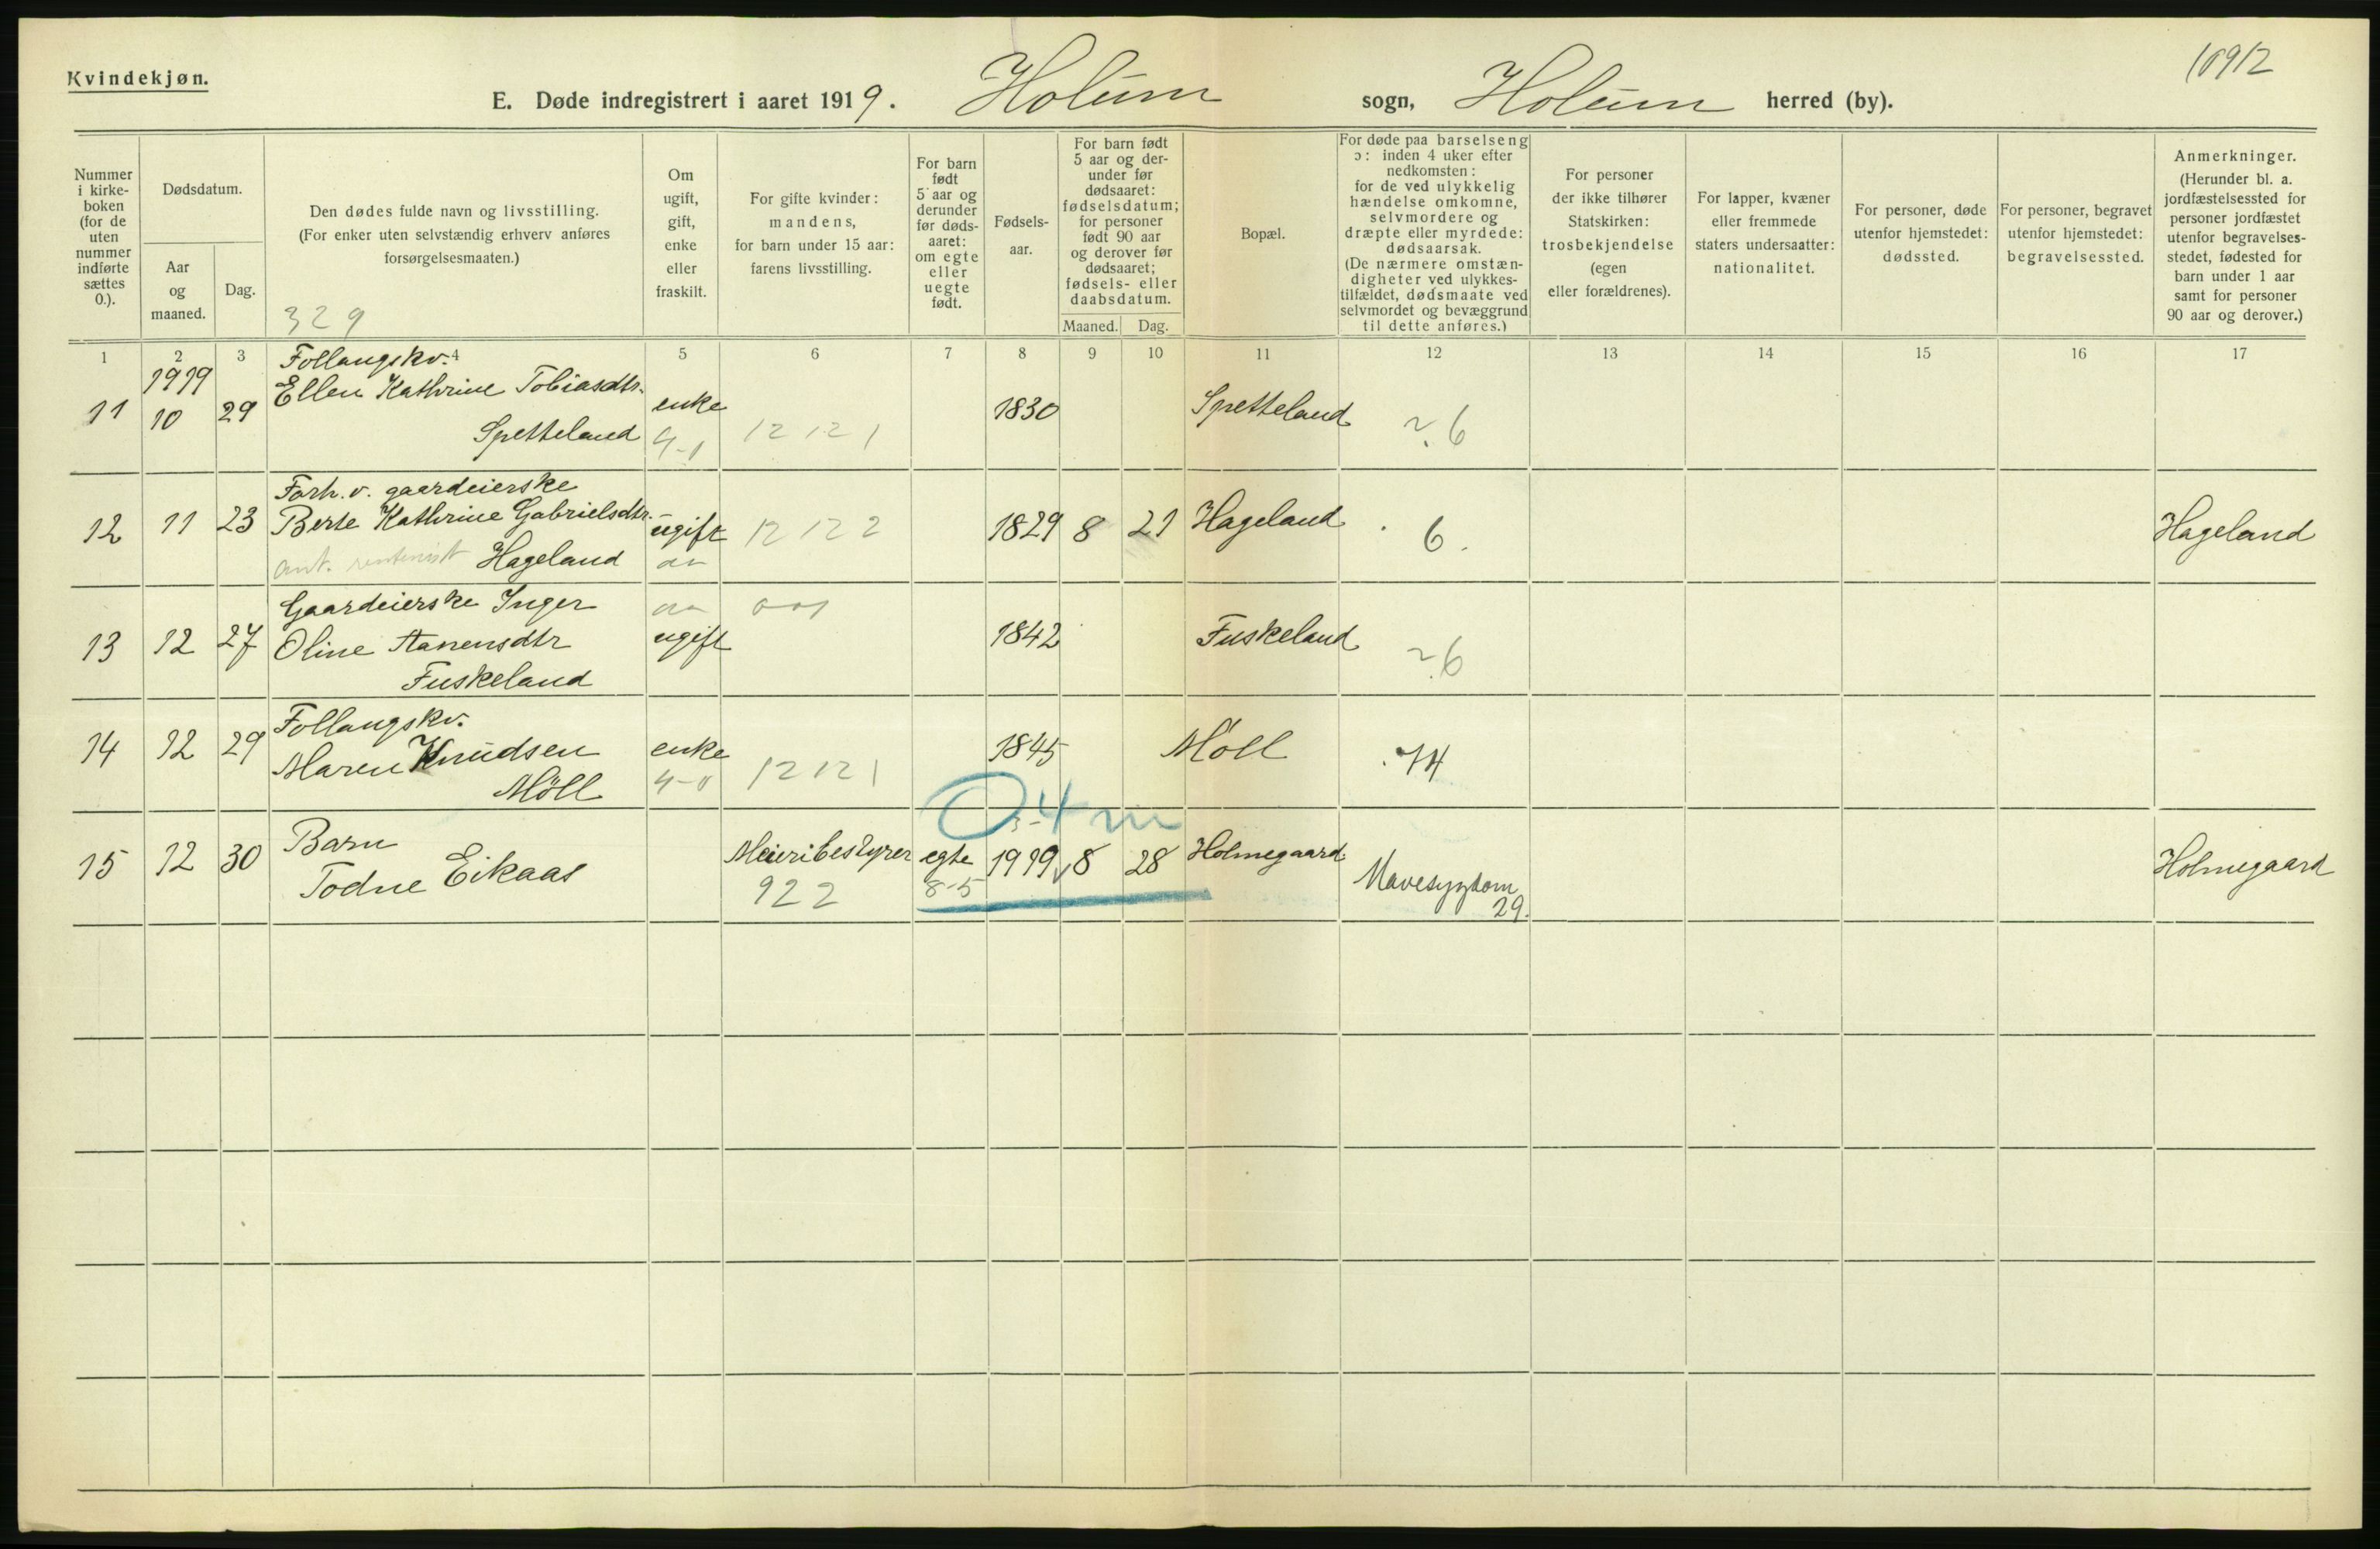 Kvindekjøn.
10912
E. Døde indregistrert i aaret 1919. Holum sogn, Holum herred (by).
Nummer i kirkeboken (for de uten nummer indførte sættes 0.).
Dødsdatum.
Aar og maaned.
Dag.
Den dødes fulde navn og livsstilling.
(For enker uten selvstændig erhverv anføres
forsørgelsesmaaten.)
329
Om ugift, gift, enke eller fraskilt.
For gifte kvinder: mandens, for barn under 15 aar: farens livsstilling.
For barn født 5 aar og derunder før dødsaaret: om egte eller uegte født.
Fødselsaar.
For barn født 5 aar og derunder før dødsaaret: fødselsdatum; for personer født 90 aar og derover før dødsaaret; fødsels- eller daabsdatum.
Maaned. Dag.
Bopæl.
For døde paa barselseng ɔ: inden 4 uker efter nedkomsten: for de ved ulykkelig hændelse omkomne, selvmordere og dræpte eller myrdede: dødsaarsak. (De nærmere omstændigheter ved ulykkestilfældet, dødsmaate ved selvmordet og bevæggrund til dette anføres.)
For personer der ikke tilhører Statskirken: trosbekjendelse (egen eller forældrenes).
For lapper, kvæner eller fremmede staters undersaatter: nationalitet.
For personer, døde utenfor hjemstedet: dødssted.
For personer, begravet utenfor hjemstedet: begravelsessted.
Anmerkninger. (Herunder bl. a. jordfæstelsessted for personer jordfæstet utenfor begravelsesstedet, fødested for barn under 1 aar samt for personer 90 aar og derover.)
1 2 3 4 5 6 7 8 9 10 11 12 13 14 15 16 17
1919
Follaugskv.
11 10 29 Ellen Kathrine Tobiasdtr. enke 1830 Spetteland
Spetteland 4-1 12 12 1 ? 6
Forh. v. gaardeierske
12 11 23 Berte Kathrine Gabrielsdtr. ugift 12 12 2 1829 8 21 Hageland 6. Hageland
Hageland
Gaardeierske Inger
13 12 27 Oline Aanensdtr ugift 1842 Fuskeland ? 6
Fuskeland
Follaugskv.
14 12 29 Maren Knudsen enke 1845 Möll 74
Möll 4-0 12 12 1
0-4 m
15 12 30 Barn Meieribestyrer egte 1919 8 28 Holmegaard Holmegaard
Todne Eikaas 922 8-5 Mavesygdom
29.